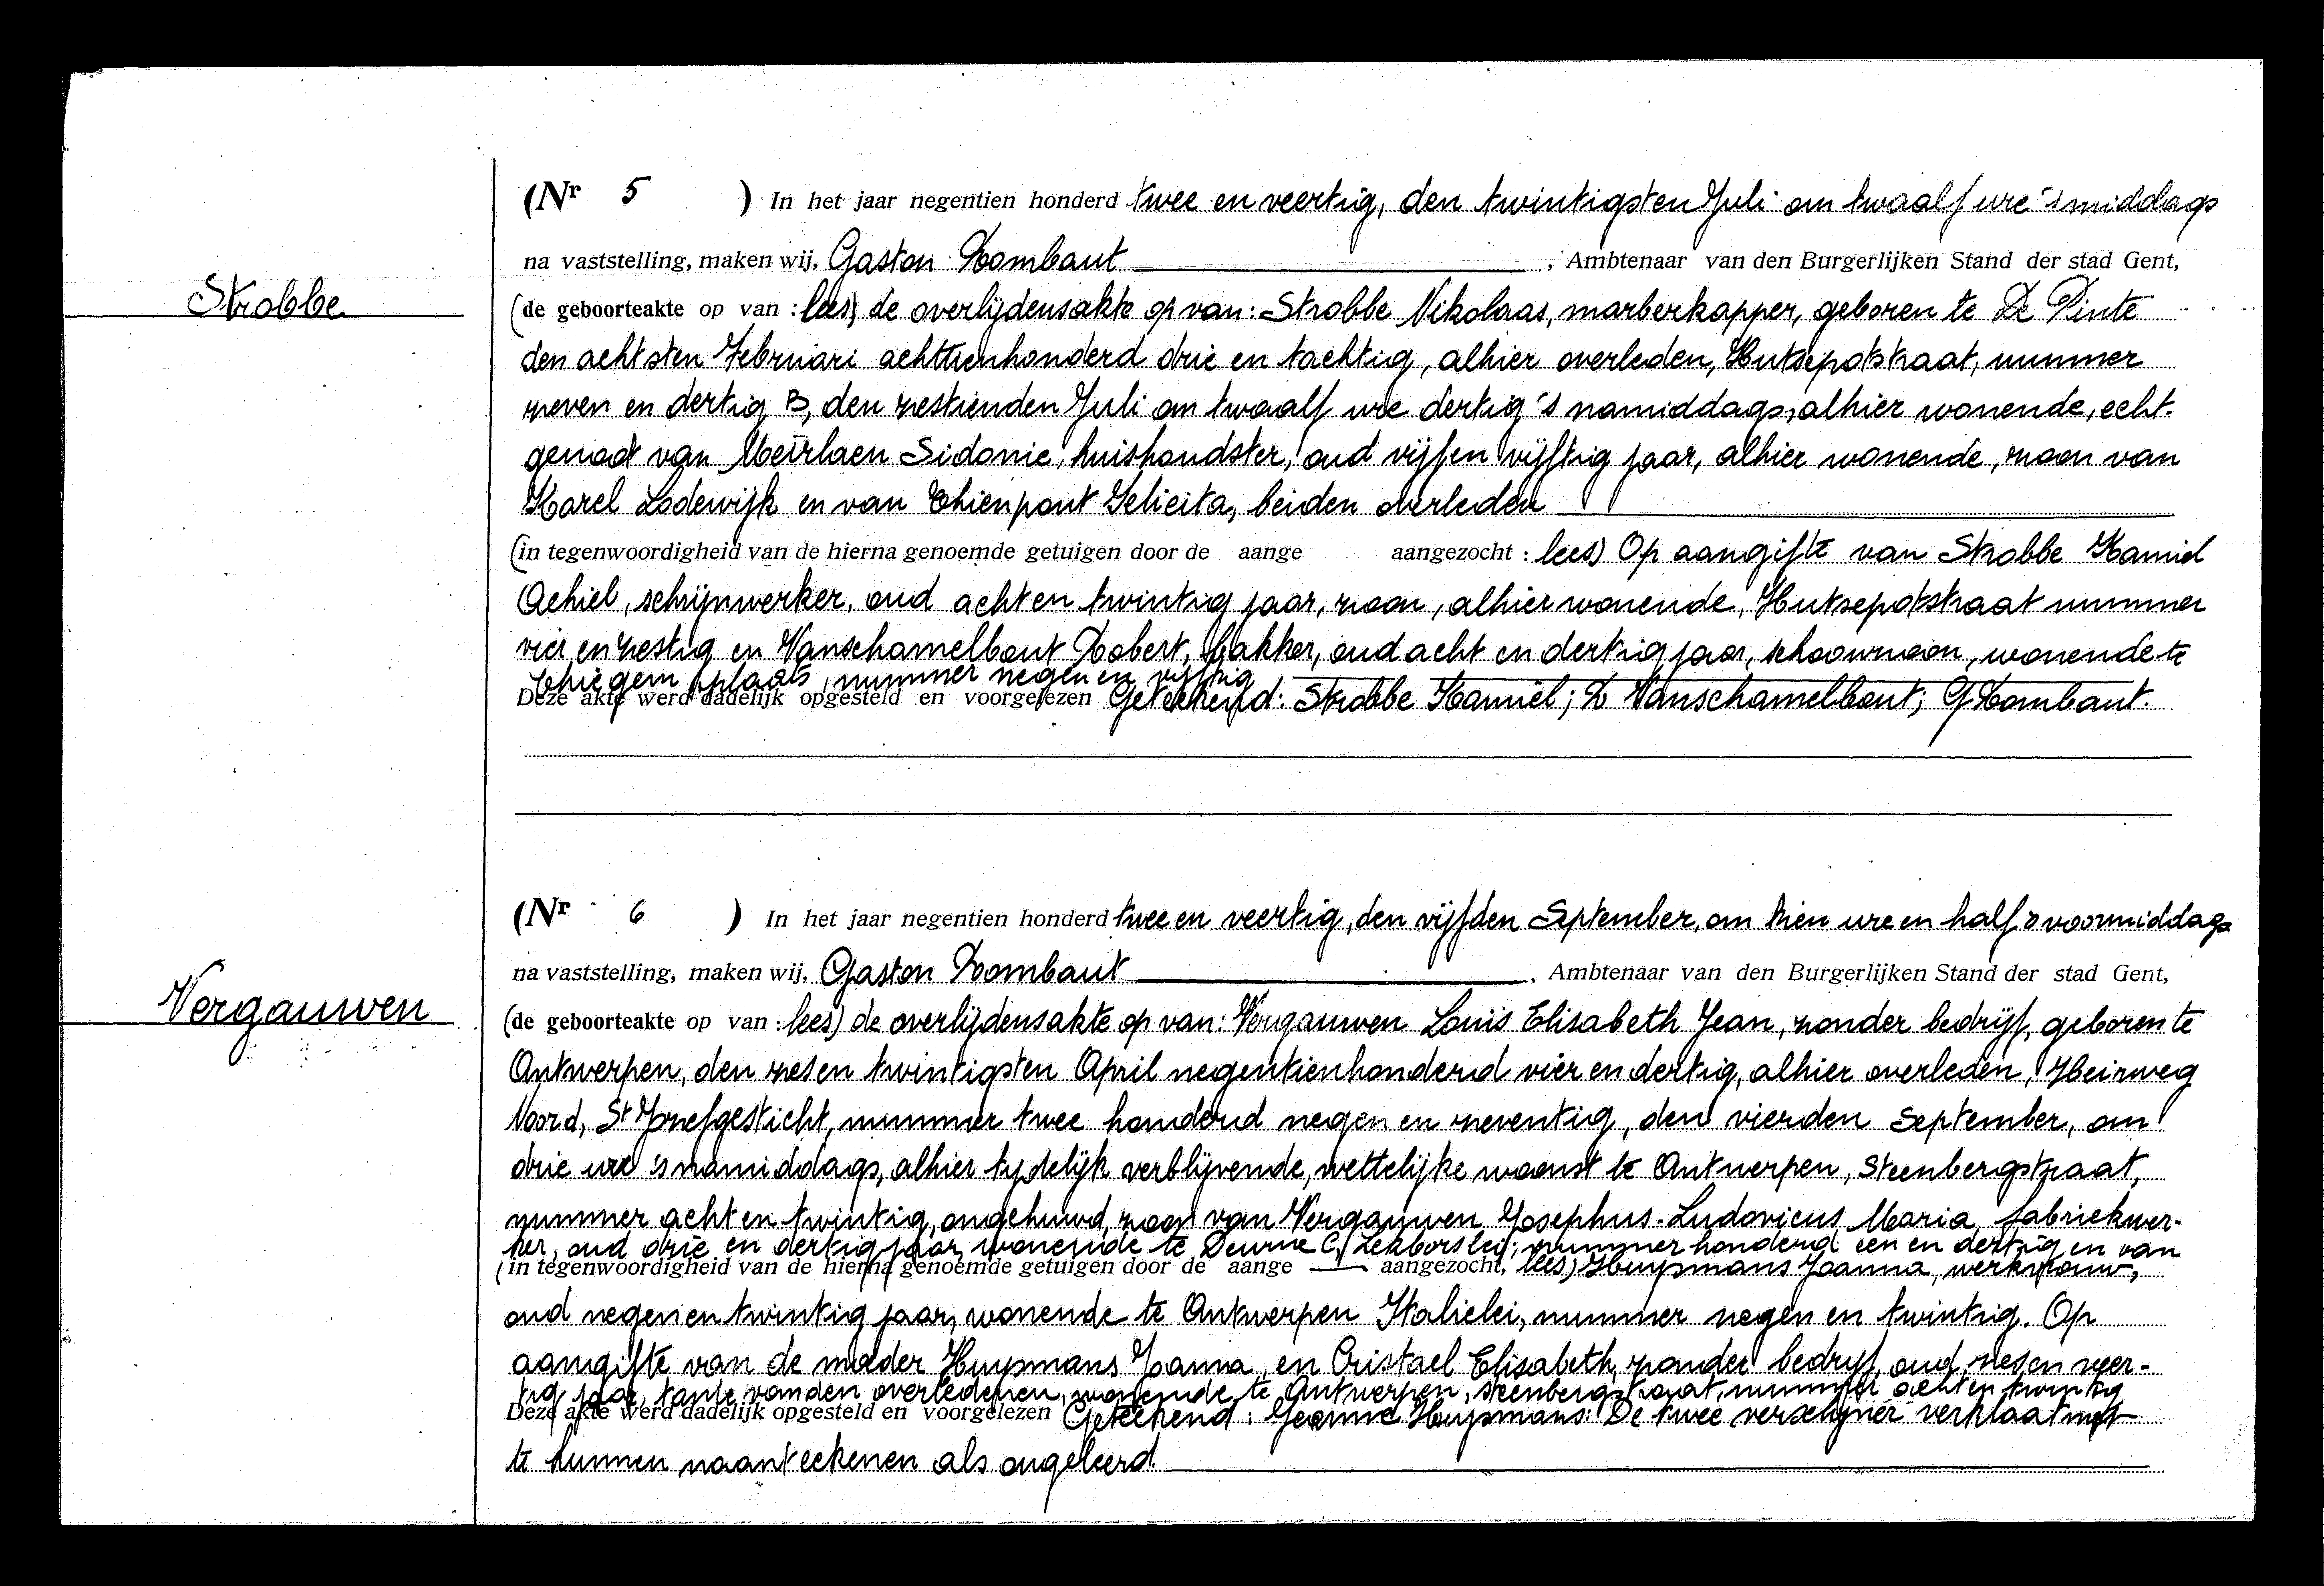 (Nr 5 ) In het jaar negentien honderd twee en veertig, den twintigsten Juli om twaalf ure 's middags
na vaststelling, maken wij, Gaston Rombaut , Ambtenaar van den Burgerlijken Stand der stad Gent,
Strobbe
(de geboorteakte op van : lees) de overlijdensakte op van: Strobbe Nikolaas, marberkapper, geboren te De Pinte
den achtsten Februari achttienhonderd drie en tachtig, alhier overleden, Hutsepotstraat, nummer
zeven en dertig B, den zestienden Juli om twaalf ure dertig 's namiddags, alhier wonende, echt-
genoot van Meirlaen Sidonie, huishoudster, oud vijf en vijftig jaar, alhier wonende, zoon van
Karel Lodewijk en van Thienpont Felicita, beiden overleden
(in tegenwoordigheid van de hierna genoemde getuigen door de aange aangezocht : lees) Op aangifte van Strobbe Kamiel
Achiel, schrijnwerker, oud acht en twintig jaar, zoon, alhier wonende, Hutsepotstraat nummer
vier en zestig en Vanschamelbout Robert, bakker, oud acht en dertig jaar, schoonzoon, wonende te
plaats, nummer negen en vijftig
Deze akte werd dadelijk opgesteld en voorgelezen Geteekend: Strobbe Kamiel; R Vanschamelbout; G Rombaut.
(Nr 6 ) In het jaar negentien honderd twee en veertig, den vijfden September, om tien ure en half 's voormiddags
na vaststelling, maken wij, Gaston Rombaut , Ambtenaar van den Burgerlijken Stand der stad Gent,
Vergauwen
(de geboorteakte op van : lees) de overlijdensakte op van: Vergauwen Louis Elisabeth Jean, zonder bedrijf, geboren te
Antwerpen, den zes en twintigsten April negentienhonderd vier en dertig, alhier overleden, Heirweg
Noord, St Jozefgesticht, nummer twee honderd negen en zeventig, den vierden September, om
drie ure 's namiddags, alhier tydelijk verblijvende, wettelijke woonst te Antwerpen, Steenbergstraat,
nummer acht en twintig, ongehuwd, zoon van Vergauwen Josephus Ludovicus Maria, fabriekwer-
ker, oud drie en dertig jaar, wonende te Deurne C, nummer honderd een en dertig en van
(in tegenwoordigheid van de hierna genoemde getuigen door de aange — aangezocht, lees) Huysmans Joanna, werkvrouw,
oud negen en twintig jaar, wonende te Antwerpen Italielei, nummer negen en twintig. Op
aangifte van de moeder Huysmans Joanna, en Cristael Elisabeth, zonder bedrijf, oud zes en veer-
tig jaar, tante van den overledenen, wonende te Antwerpen, Steenbergstraat, nummer acht en twintig
Deze akte werd dadelijk opgesteld en voorgelezen Geteekend: Jeanne Huysmans: De twee verschijner verklaart niet
te kunnen naamteekenen als ongeleerd